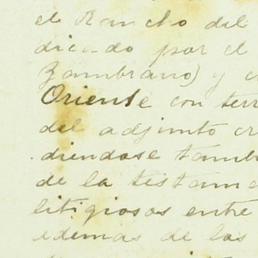 el Rancho del
diendo por el
Zambrano) y
Oriente con terr
del adjunto cr
diendose tamb
de la testam
litigiosos entre
ademas de los